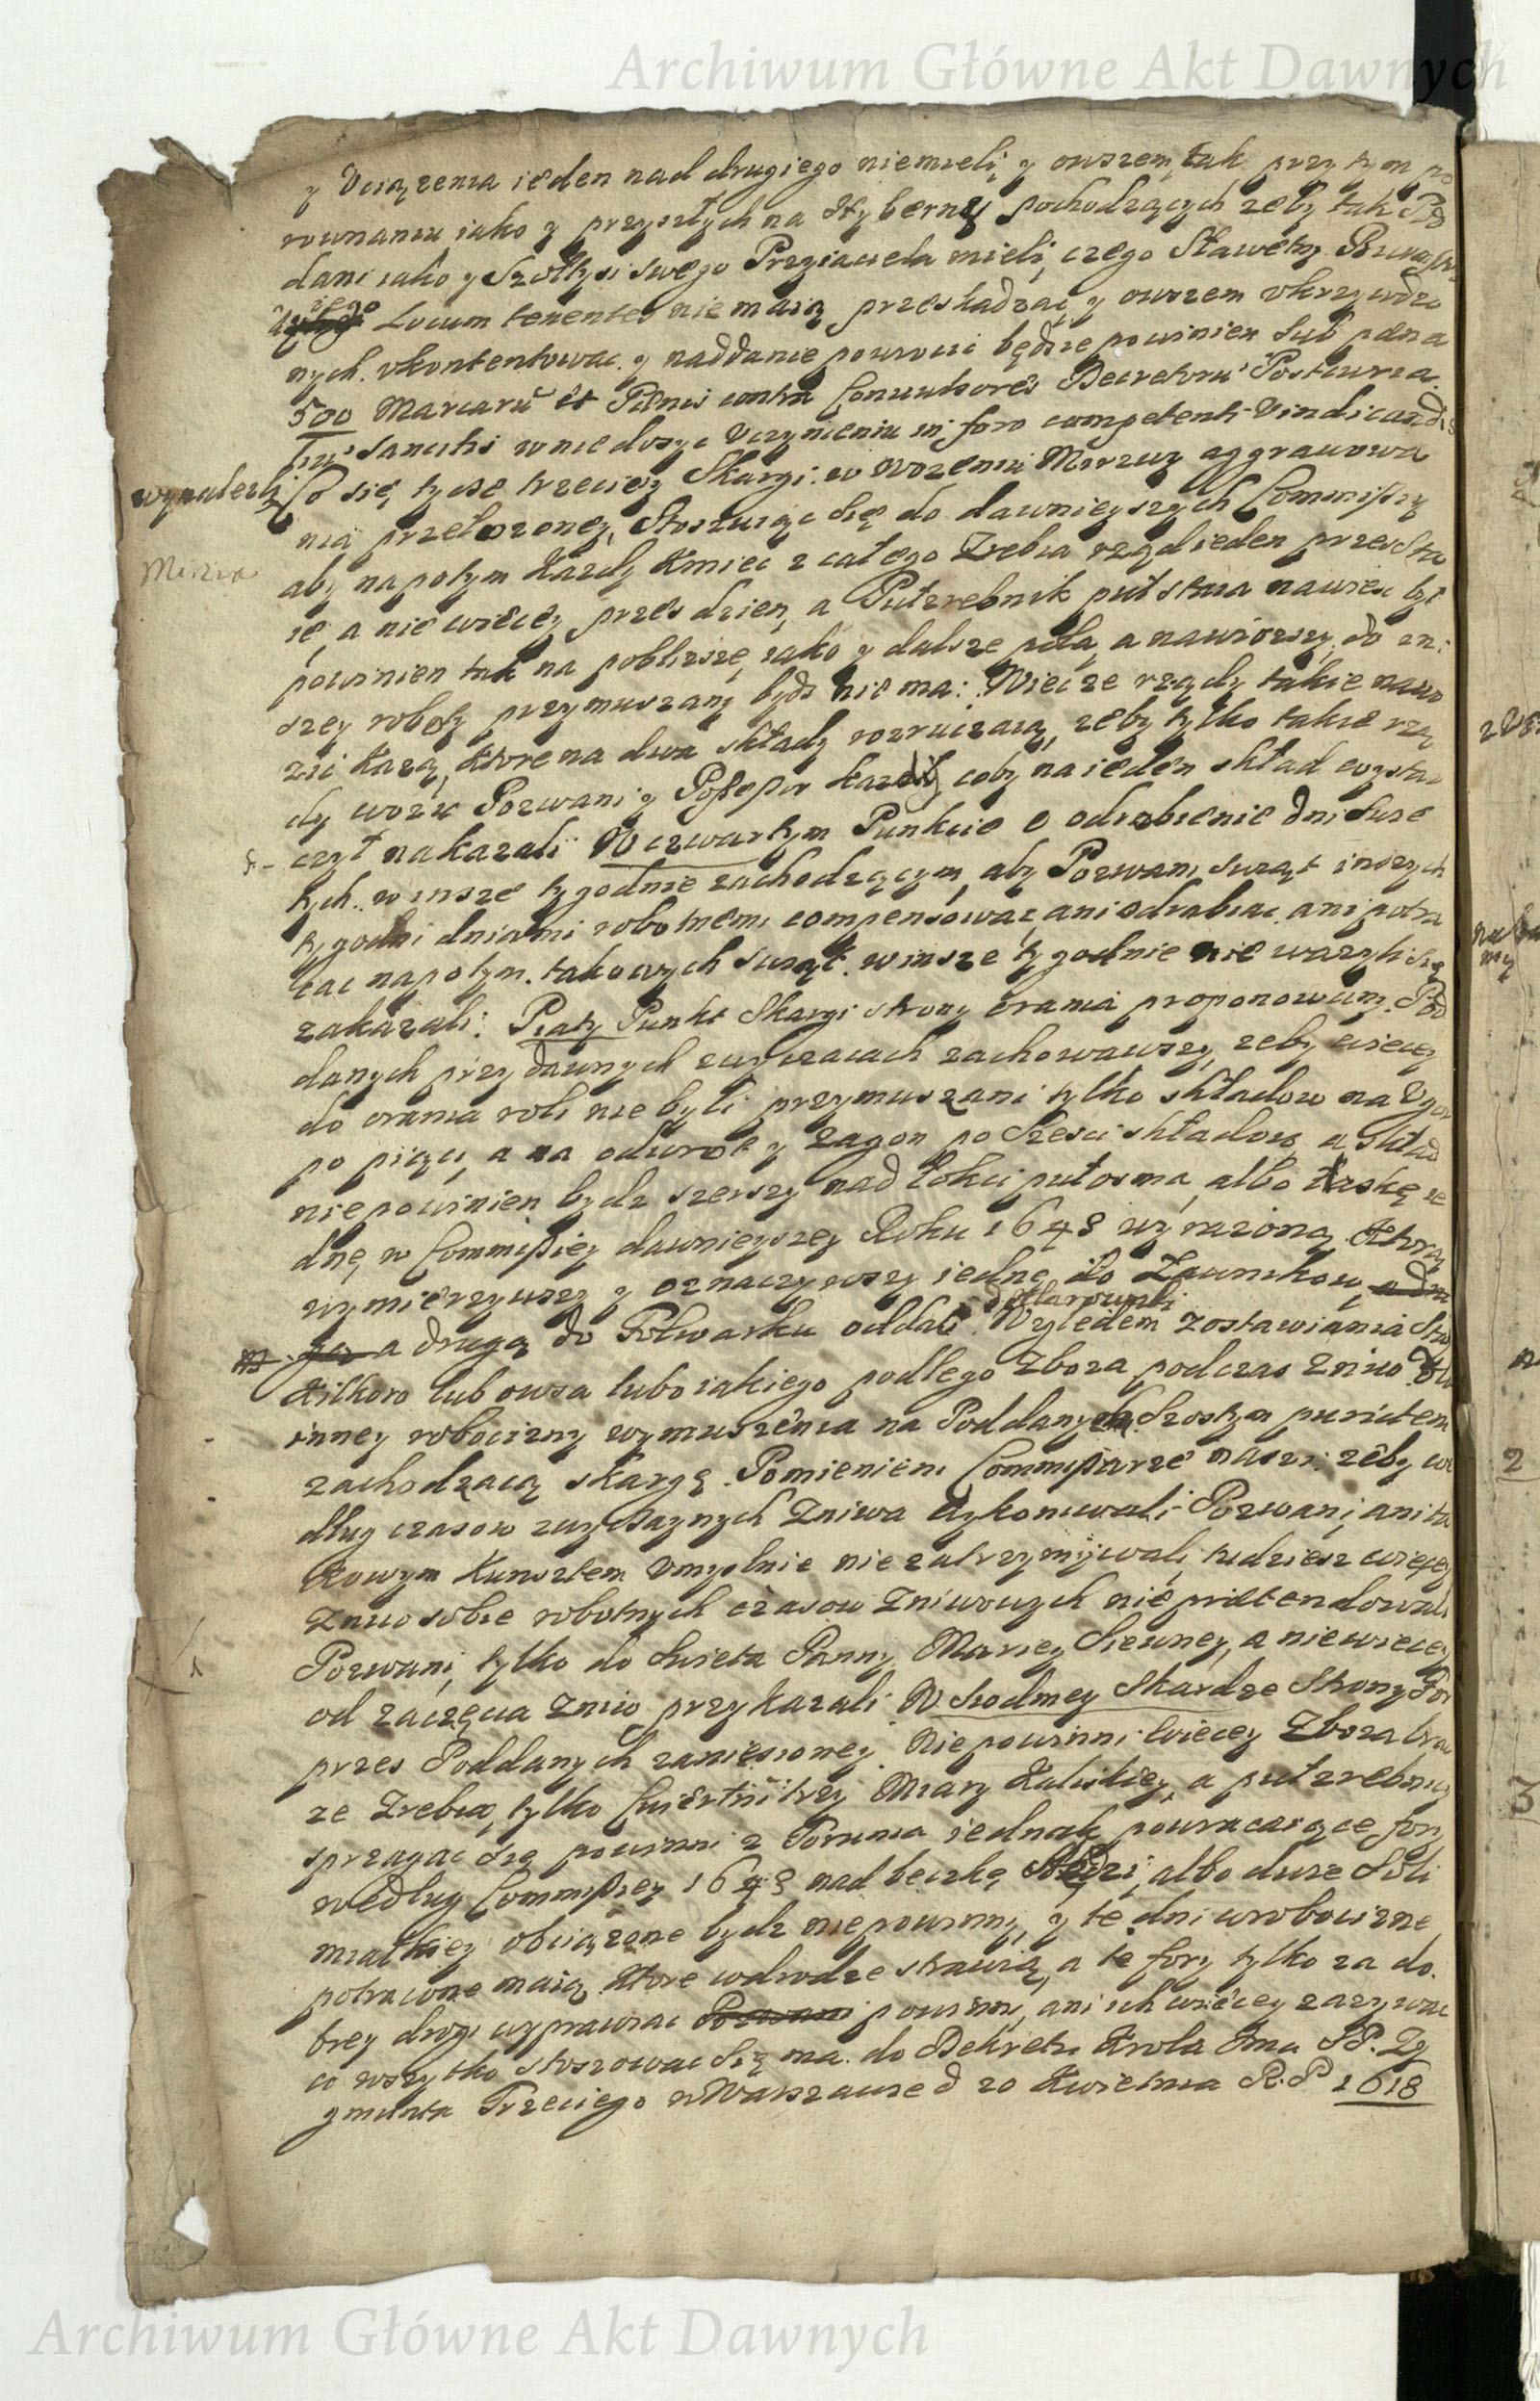 Archiwum Główne Akt Dawnych
y Uciązenia ieden nad drugiego niemieli, y owszem, tak przy tym po
rownaniu iako y przyszłych na Hyberny pochodzących zeby tak Pod
dani iako y Szołtysi swego Przyiaciela mieli, czego Sławetny
Locum tenentes nie maią przeskadzac, y owszem vkrzywdzo
nych vkontentowac y naddanie powrocic będzie powinien sub pœna
500 Marcarũ et Pœnis contra Convulsores Decretorũ Postcuria
lium sancitis w nie dosyc Uczynieniu in foro competenti Vindicandis
wynalezli Co się tycze trzeciey Skargi w wozeniu Mierzwy aggrawowa
nia przełozoney, Stosuiąc się do dawnieyszych Commissiy
Mierzwa
aby napotym kazdy Kmiec z całego Zrebia rządieden przez sta
ie, a nie wiecey przez dzien, a Pułzrebnik puł staia nawiesc byc
powinien tak na poblizsze, iako y dalsze pola, a nawiozszy, do in:
szey roboty przymuszany bydz nie ma: Wiec ze rządy takie nawo
zic kazą, ktore na dwa składy rozrucaią, zeby tylko takie rzą
dy wozic Pozwani y Possessor kazdy, coby na ieden skład wysta
czył nakazali W czwartym Punkcie o odrobienie dni Swię
tych w insze tygodnie zachodzącym, aby Pozwani swiąt inszych
tygodni dniami robotnemi compensowac, ani odrabiac ani potra
cac napotym takowych swiąt w insze tygodnie nie wazyli się
zakazali: Piąty Punkt Skargi strony orania proponowany, Pod
danych przy dawnych zwyczaiach zachowawszy, zeby wiecey
do orania roli nie byli przymuszani tylko składow na Ugor
po pięci, a na odwrot y zagon po Szesci składow, a skład
nie powinien bydz szerszy nad Łokci pułosma, albo łaskę ie
dnę w Commissiey dawnieyszey Roku 1648 wyrazoną ktorą
wymierzywszy y oznaczywszy iednę do Ławnikow
a drugą do Folwarku oddali Względem zostawiania
kilkoro lub owsa lubo iakiego podłego Zboza podczas zniwo dla
inney robocizny wymuszenia na Poddanych Szostym punctem
zachodzącą skargę. Pomienieni Commissarze naszi zeby we
dług czasow zwyczaynych Zniwa wykonywali Pozwani, ani ta
kowym kunsztem Umyslnie nie zatrzymywali, tudziesz wiecey
Zniwo sobie robotnych czasow Zniwowych nie prætendowali
Pozwani, tylko do swieta Panny Mariey Siewney, a niewiecey
od zaczęcia zniw przykazali W Siodmey Skardze Strony For
przez Poddanych zaniesioney Nie powinni wiecey Zboza brac
ze Zrebia, tylko Cwiertni trzy Miary Kaliskiey, a pułzrebnicy
sprzagac się powinni z Torunia iednak powracaiące fory
według Commissiey 1648 nad beczkę Sledzi, albo dwie Soli
miałkiey obciązone bydz niepowinny, y te dni w robociznę
potracone maią, ktore w drodze strawią, a te fory tylko za do
brey drogi wyprawiac powinni, ani ich wiecey zazywac
co wszytko stosowac się ma do Dekretu Krola Jmci SP. Zy
gmunta Trzeciego w Warszawie d 20 Kwietnia R. P 1618
Archiwum Główne Akt Dawnych